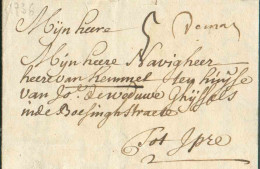 1736
Mijn heere
5
Mijn heere Navigheer
heere van hemmel ten huyse
van Jo.s de weduwe Ghijssels
inde Boesingh straete
Tot Ipre